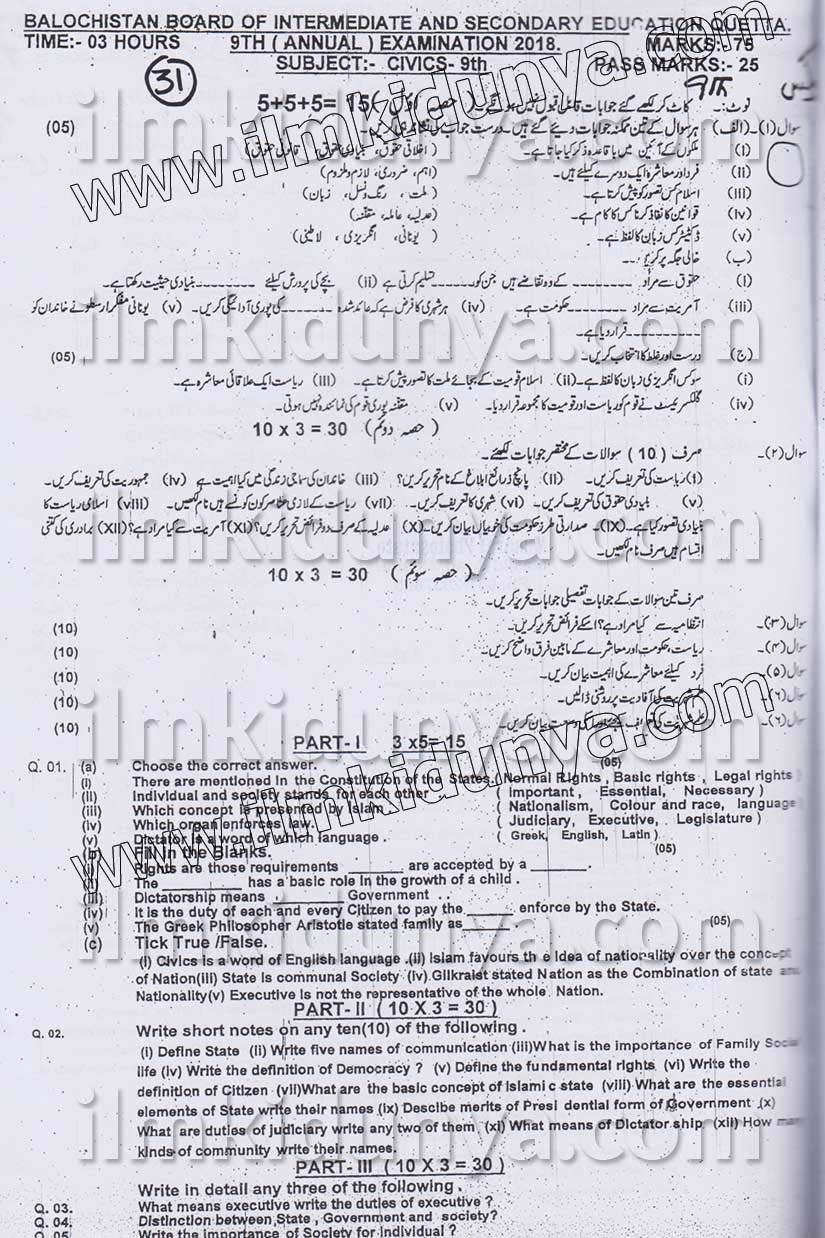 BALOCHISTAN BOARD OF INTERMEDIATE AND SECONDARY EDUCATION QUETTA.
TIME:- 03 HOURS 9TH ( ANNUAL ) EXAMINATION 2018. MARKS:- 75
SUBJECT:- CIVICS- 9th PASS MARKS:- 25
31 9th
نوٹ:۔ کاٹ کر لکھے گئے جوابات قابل قبول نہیں ہوں گے۔ (حصہ اوّل) 5+5+5= 15
سوال(۱)۔ (الف) ہر سوال کے تین ممکنہ جوابات دیئے گئے ہیں۔ درست جواب کی کریں۔ (05)
(I) ملکوں کے آئین میں باقاعدہ ذکر کیا جاتا ہے۔ (اخلاقی حقوق، بنیادی حقوق، قانونی حقوق)
(II) فرد اور معاشرہ ایک دوسرے کیلئے ہیں۔ (اہم، ضروری، لازم و ملزوم)
(III) اسلام کس تصور کو پیش کرتا ہے۔ (ملت ، رنگ و نسل ، زبان)
(IV) قوانین کا نفاذ کرنا کس کا کام ہے۔ (عدلیہ، عاملہ، مقننہ)
(V) ڈکٹیٹر کس زبان کا لفظ ہے۔ (یونانی، انگریزی ، لاطینی)
(ب) خالی جگہ پر کریں۔
(I) حقوق سے مراد -------- کے وہ تقاضے ہیں جن کو ------ تسلیم کرتی ہے (ii) بچے کی پرورش کیلئے -------- بنیادی حیثیت رکھتا ہے۔
(iii) آمریت سے مراد -------- حکومت ہے۔ (iv) ہر شہری کا فرض ہے کہ عائد شدہ ------- کی پوری آدائیگی کریں۔ (v) یونانی مفکر ارسطو نے خاندان کو
---------- قرار دیا ہے۔
(ج) درست اور غلط کا انتخاب کریں۔ (05)
(i) سوکس انگریزی زبان کا لفظ ہے۔ (ii) اسلام قومیت کے بجائے ملت کا تصور پیش کرتا ہے۔ (iii) ریاست ایک علاقائی معاشرہ ہے۔
(iv) گلکرسٹ نے قوم کو ریاست اور قومیت کا مجموعہ قرار دیا۔ (v) مقننہ پوری قوم کی نمائندہ نہیں ہوتی۔
(حصہ دوئم) 10 x 3 = 30
سوال(۲)۔ صرف (10) سوالات کے مختصر جوابات لکھئے۔
(i) ریاست کی تعریف کریں۔ (II) پانچ ذرائع ابلاغ کے نام تحریر کریں؟ (iii) خاندان کی سماجی زندگی میں کیا اہمیت ہے (iv) جمہوریت کی تعریف کریں۔
(v) بنیادی حقوق کی تعریف کریں۔ (vi) شہری کا تعریف کریں۔ (vii) ریاست کے لازمی عناصر کون کونسے ہیں نام لکھیں۔ (viii) اسلامی ریاست کا
بنیادی تصور کیا ہے۔ (IX)۔ صدارتی طرز حکومت کی خوبیاں بیان کریں۔ (X) عدلیہ کے صرف دو فرائض تحریر کریں؟ (XI) آمریت سے کیا مراد ہے؟ (XII) برادری کی کتنی
اقسام ہیں صرف نام لکھیں۔
(حصہ سوئم) 10 x 3 = 30
صرف تین سوالات کے جوابات تفصیلی جوابات تحریر کریں۔
سوال(۳)۔ انتظامیہ سے کیا مراد ہے؟ اسکے فرائض تحریر کریں۔ (10)
سوال(۴)۔ ریاست، حکومت اور معاشرے کے مابین فرق واضح کریں۔ (10)
سوال(۵)۔ فرد کیلئے معاشرے کی اہمیت بیان کریں۔ (10)
سوال(۶)۔ کی آفادیت پر روشنی ڈالیں۔ (10)
سوال(۶)۔ بیان کریں۔ (10)
PART- I 3 x5= 15
Q. 01. (a) Choose the correct answer. (05)
(i) There are mentioned in the Constitution of the States. ( Normal Rights , Basic rights , Legal rights )
(ii) Individual and society stands for each other ( Important , Essential, Necessary )
(iii) Which concept is presented by Islam ( Nationalism, Colour and race, language )
(iv) Which organ enforces law. ( Judiciary, Executive, Legislature )
(v) Dictator is a word of which language . ( Greek, English, Latin )
(b) Fill in the Blanks. (05)
(i) Rights are those requirements ______ are accepted by a ______.
(ii) The ________ has a basic role in the growth of a child .
(iii) Dictatorship means ________ Government . .
(iv) It is the duty of each and every Citizen to pay the _____ enforce by the State.
(v) The Greek Philosopher Aristotle stated family as _____ (05)
(c) Tick True /False.
(i) Civics is a word of English language .(ii) Islam favours the Idea of nationality over the concept
of Nation(iii) State is communal Society (iv) Gilkraist stated Nation as the Combination of state and
Nationality(v) Executive is not the representative of the whole Nation.
PART- II ( 10 X 3 = 30 )
Q. 02. Write short notes on any ten(10) of the following .
(i) Define State (ii) Write five names of communication (iii)What is the importance of Family Social
life (iv) Write the definition of Democracy ? (v) Define the fundamental rights (vi) Write the
definition of Citizen (vii)What are the basic concept of Islamic state (viii) What are the essential
elements of State write their names (ix) Descibe merits of Presi dential form of Government (x)
What are duties of judiciary write any two of them (xi) What means of Dictator ship (xii) How many
kinds of community write their names.
PART- III ( 10 X 3 = 30 )
Write in detail any three of the following .
Q. 03. What means executive write the duties of executive ?
Q. 04. Distinction between State , Government and society?
Q. 05. Write the importance of Society for Individual ?
www.ilmkidunya.com
ilmkidunya.com